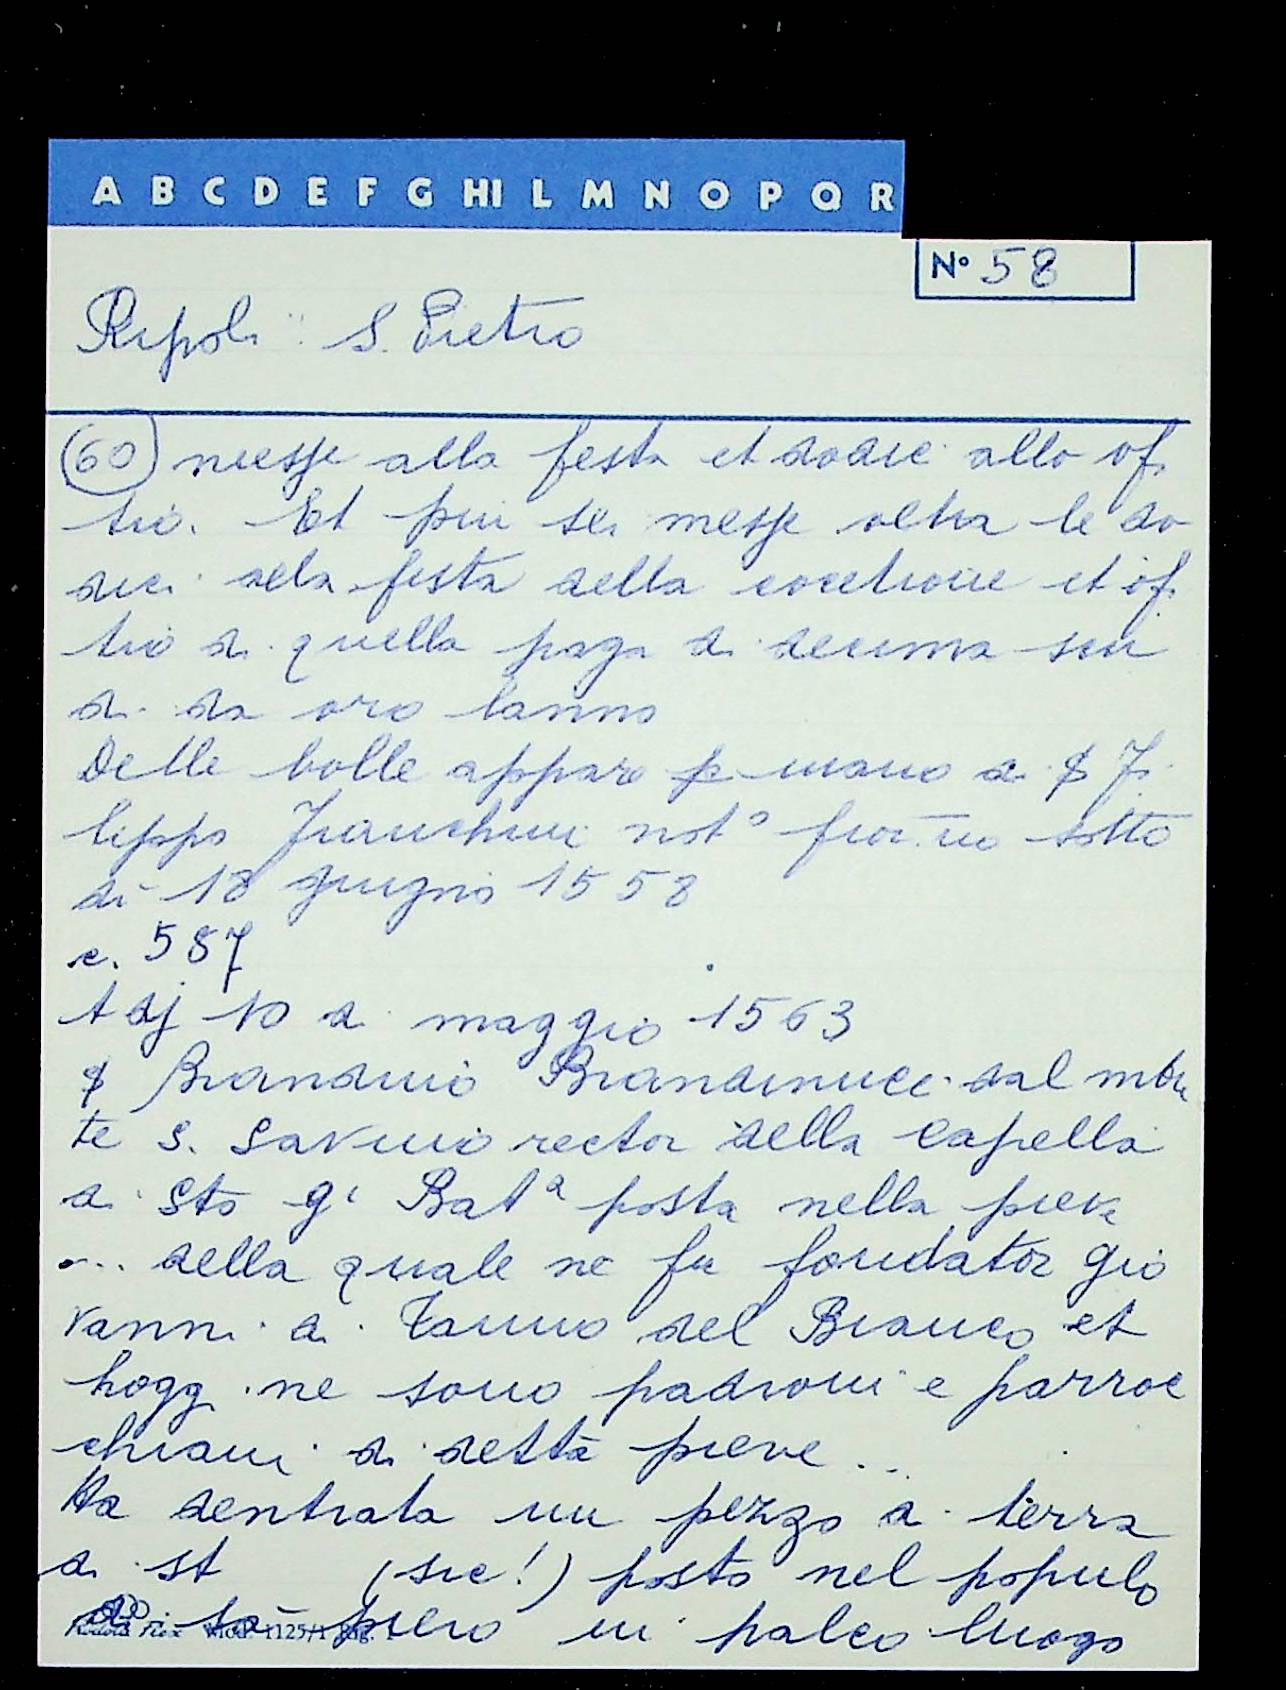 A B C D E F G HI L M N O P Q R
N° 58
Ripoli: S. Pietro
(60) messe alla festa et dodici allo of
tio. Et piu sei messe oltra le do
dici dela festa della cocetione et of
tio di quella paga di decima scu
di da oro lanno
Delle bolle appare p mano di $ Fi
lippo Franchini not° fior.no sotto
di 18 giugno 1558
c. 587
Adj 10 di maggio 1563
$ Brandino Brandinucci dal mon
te S. Savino rector della Capella
di Sto Gi Bat^a posta nella pieve
... della quale ne fu fondator Gio
vanni di Tanino del Bianco et
hogg. ne sono padroni e parroc
chiani di detta pieve ...
Ha dentrata un pezzo di terra
di st (sic!) posto nel populo
di sã piero in palco luogo
Mod. 1125/1